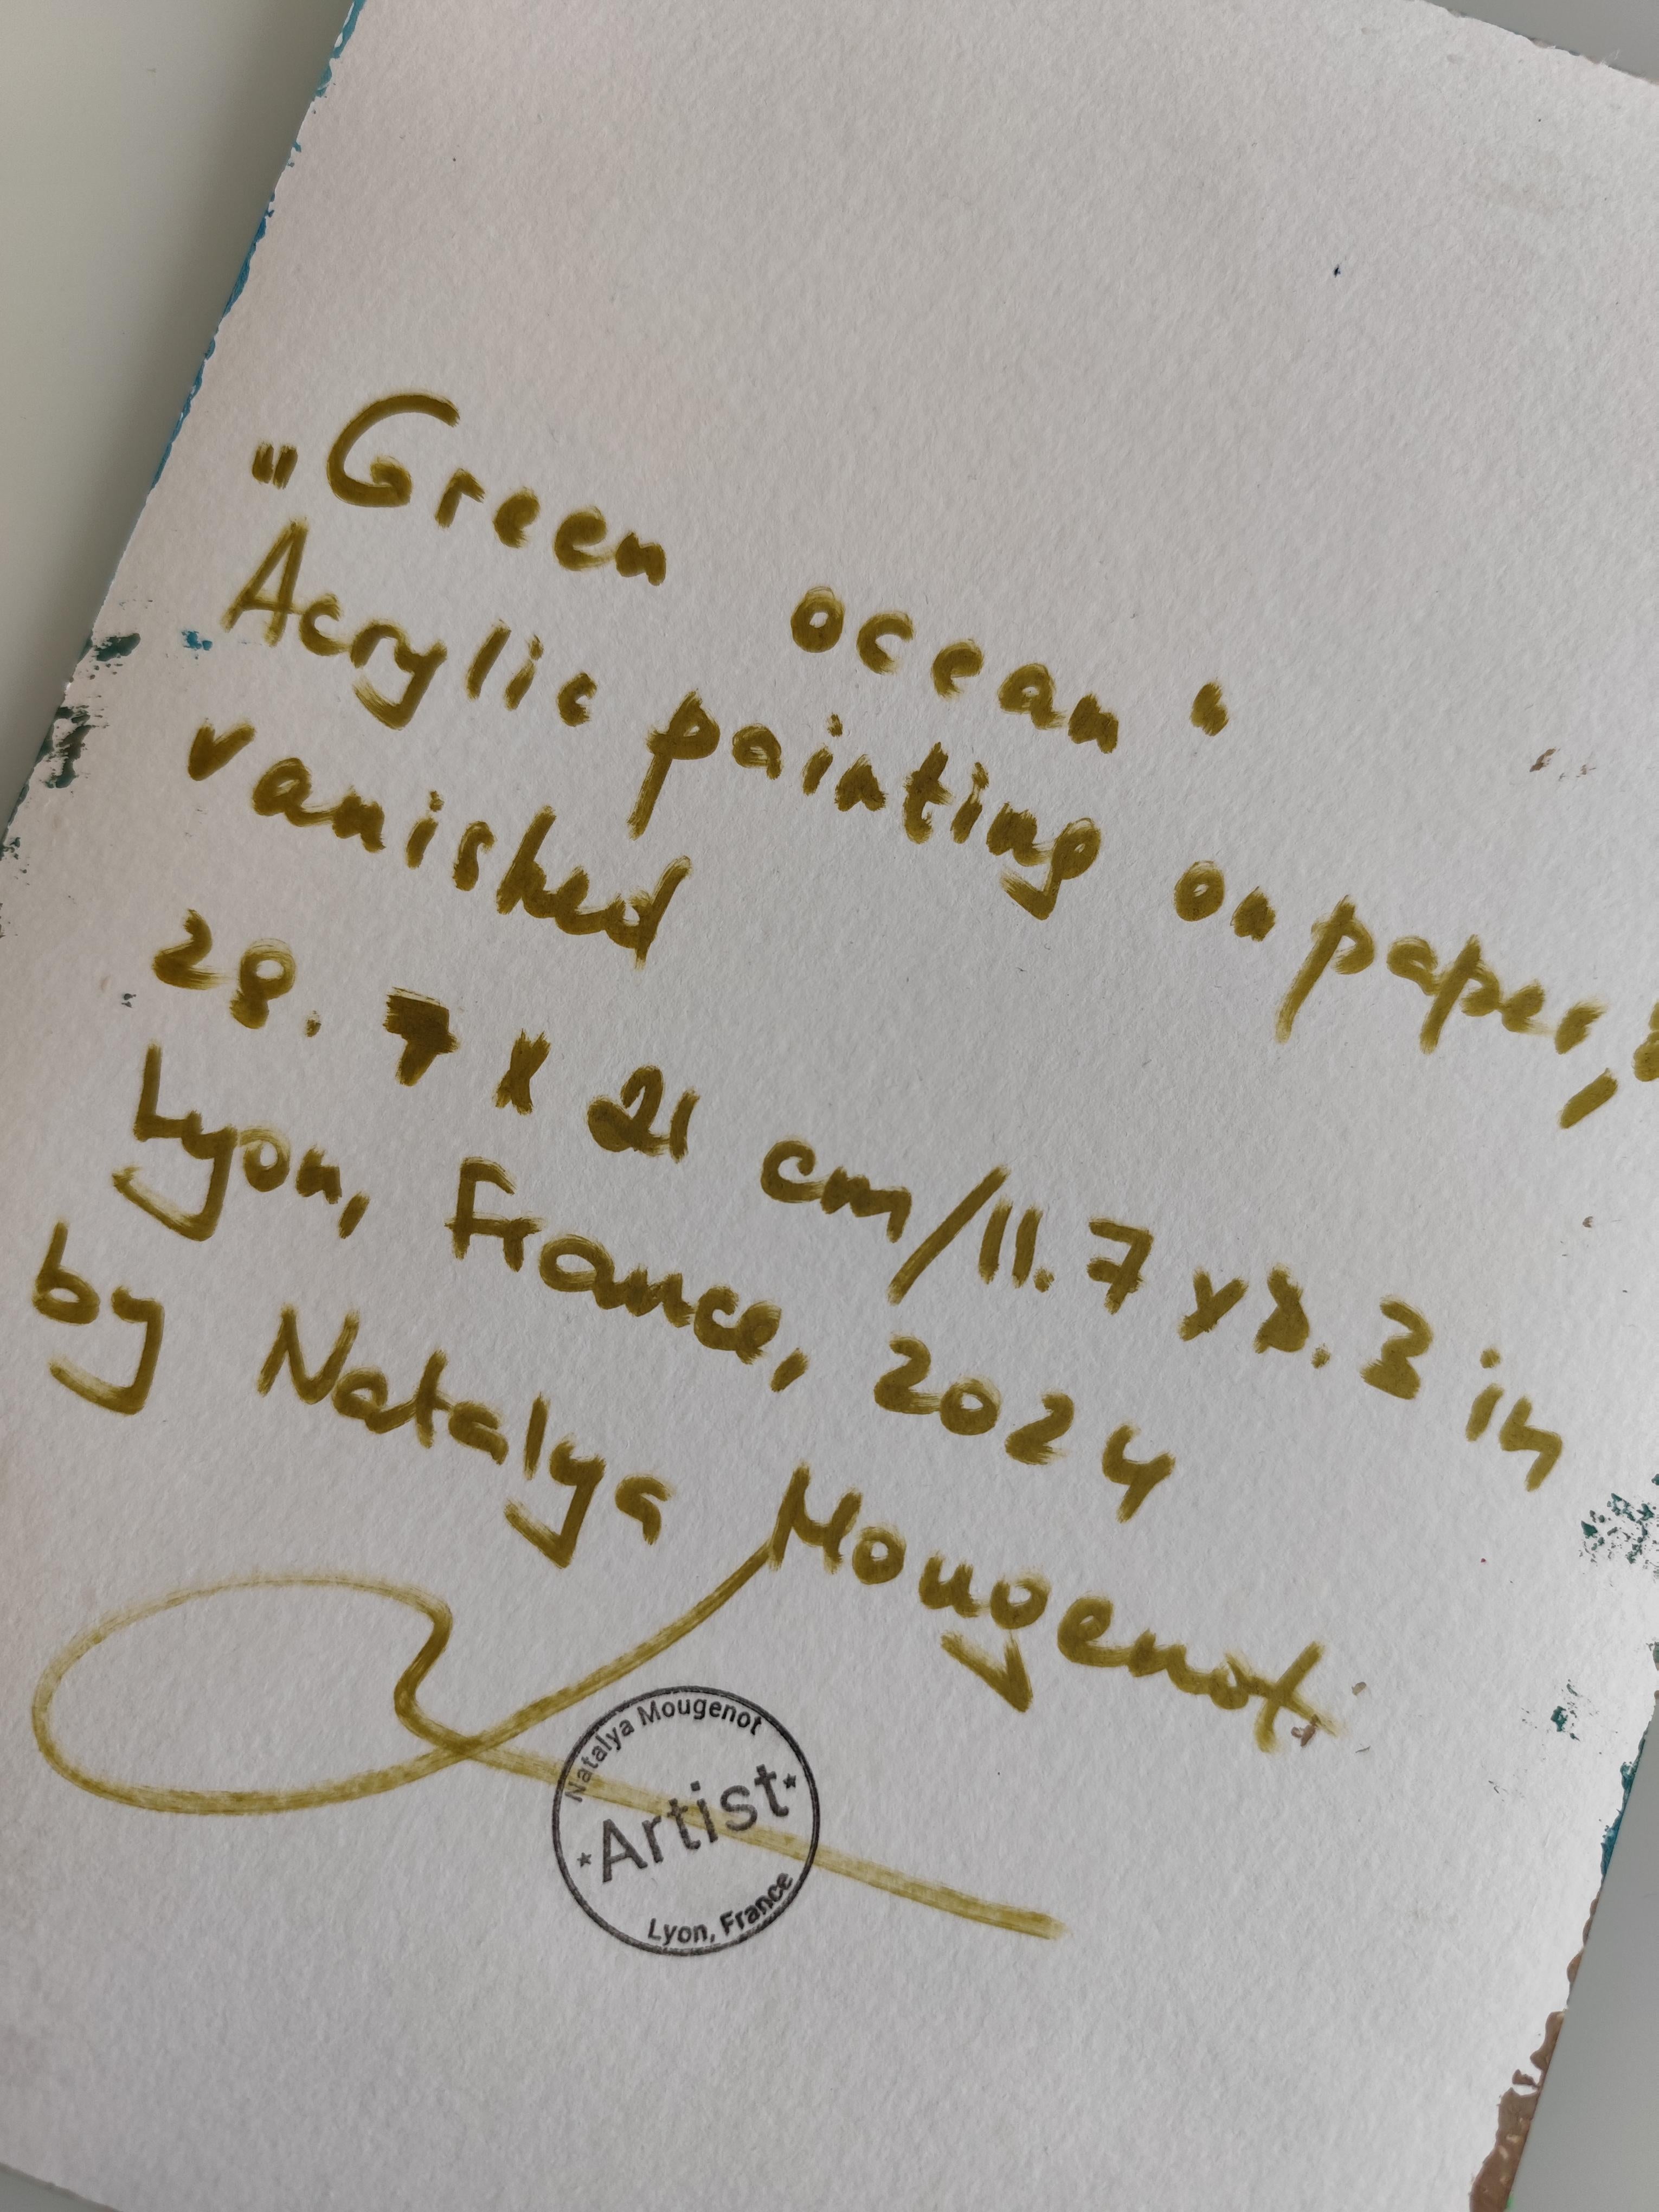 „Green ocean“
Acrylic painting on paper,
vanished
28.7 x 21 cm/11.7 x 8.3 in
Lyon, France, 2024
by Natalya Mougenot.
Natalya Mougenot
Artist
Lyon, France